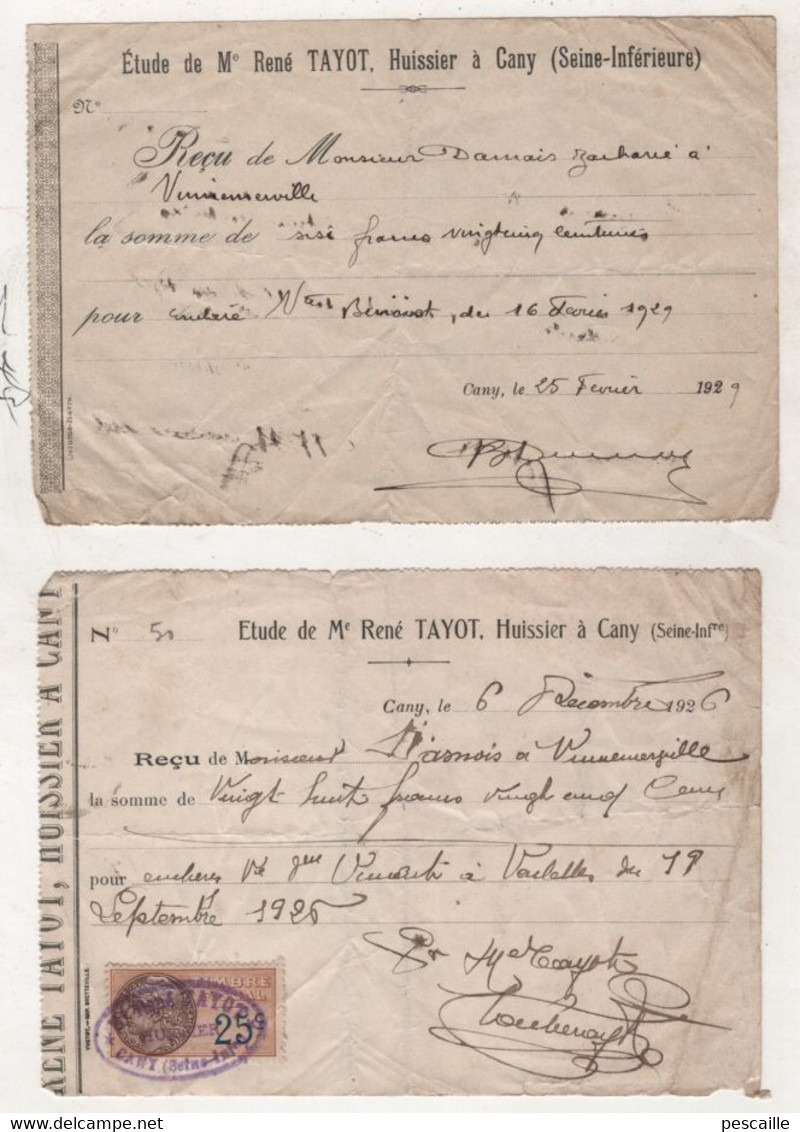 Étude de Mᵉ René TAYOT, Huissier à Cany (Seine-Inférieure)
Nº
Reçu de Monsieur Damais Zacharie à
Vinnemerville
la somme de six francs vingt cinq centimes
pour enchère Nᵗˢ, du 16 Février 1929
Cany, le 25 Février 1929
RENÉ TAYOT, HUISSIER A CANY
Nº 50 Etude de Mᵉ René TAYOT, Huissier à Cany (Seine-Infʳᵉ)
Cany, le 6 Décembre 1926
Reçu de Monsieur à Vinnemerville
la somme de Vingt huit francs vingt cinq Cent
pour enchères Vᵉ à du
Septembre 1926
Pr Me Tayot
TIMBRE
FISCAL
25ᶜ
TAYOT
HUISSIER
CANY (Seine-Inf.)
pescaille